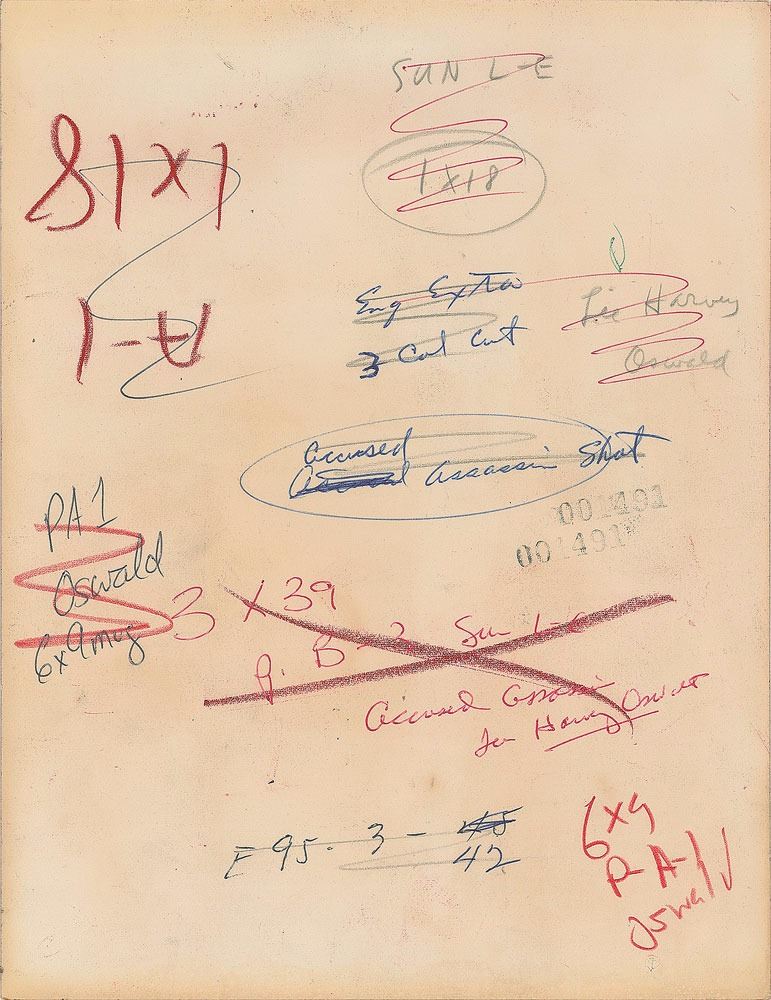 SUN L-E
1x18
1x18
A-1
Eng Extra
3 Col Cut
Lee Harvey
Oswald
Accused
Assassin Shot
001491
001491
PA 1
Oswald
6x9
3 x 39
P. B-2 Sun L-E
Accused Assassin
Lee Harvey Oswald
E 95. 3 - 45
42
6x9
P A-1
Oswald